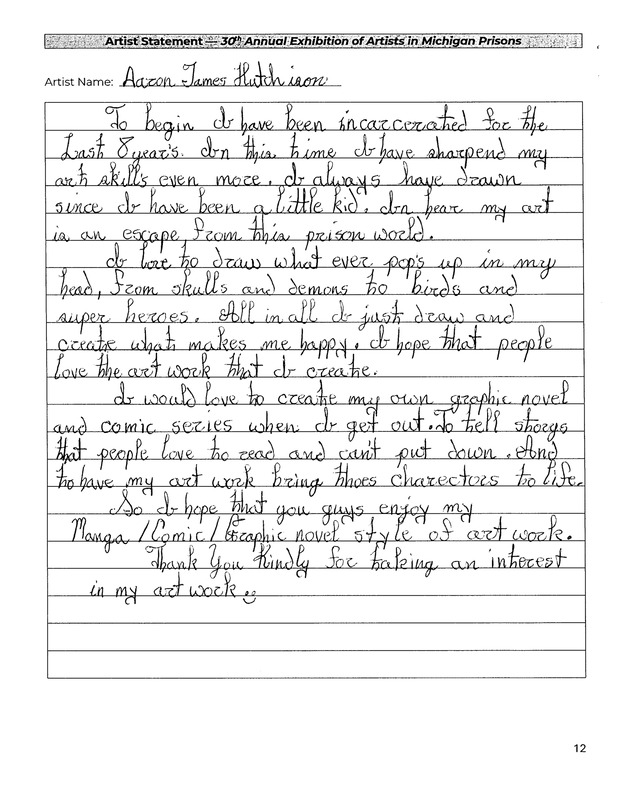 Artist Statement — 30th Annual Exhibition of Artists in Michigan Prisons
Artist Name: Aaron James Hutchison
To begin I have been incarcerated for the
Last 8 year's. In this time I have sharpend my
art skills even more. I always have drawn
since I have been a little kid. In hear my art
is an escape from this prison world.
I love to draw what ever pop's up in my
head, from skulls and demons to birds and
super heroes. All in all I just draw and
create what makes me happy. I hope that people
love the art work that I create.
I would love to create my own graphic novel
and comic series when I get out. To tell storys
that people love to read and can't put down. And
to have my art work bring thoes charectors to life.
So I hope that you guys enjoy my
Manga / Comic / Graphic novel style of art work.
Thank You Kindly for taking an interest
in my art work
12